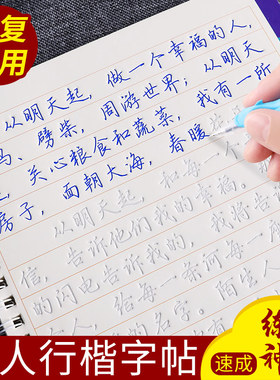 复
用
从明天起，做一个幸福的人，
马、劈柴，周游世界；从明天
，关心粮食和蔬菜，我有一所
房子，面朝大海，春暖
从明天起，和每一个
信，告诉他们我的幸福。
的闪电告诉我的，我将告
人，给每一条河每一
的名字。陌生人
人行楷字帖
速成
练